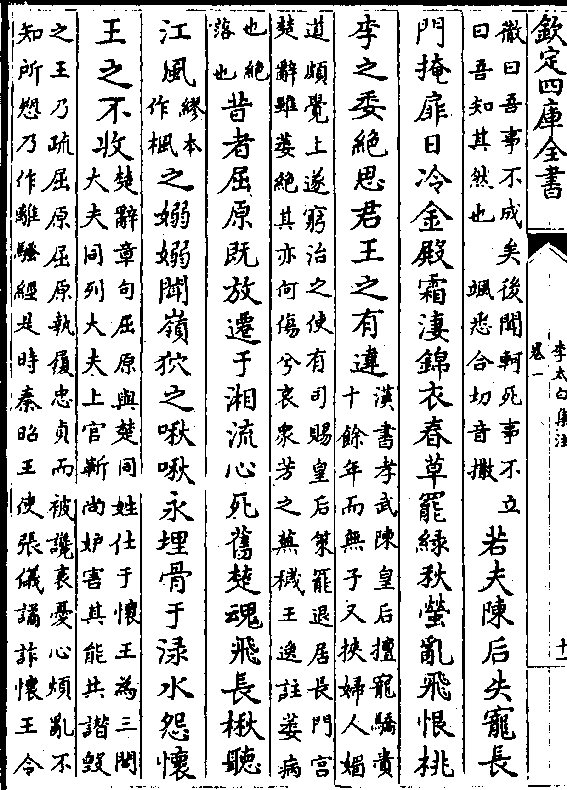 欽定四庫全書
李太白集注
卷一
十一
徹曰吾事不成矣後聞軻死事不立
曰吾知其然也 颯悉合切音撒
若夫陳后失寵長
門掩扉日冷金殿霜淒錦衣春草罷綠秋螢亂飛恨桃
李之委絕思君王之有違
漢書孝武陳皇后擅寵驕貴
十餘年而無子又挾婦人媚
道頗覺上遂窮治之使有司賜皇后策罷退居長門宫
楚辭雖萎絕其亦何傷兮哀衆芳之蕪穢王逸註萎病
也絕
落也
昔者屈原既放遷于湘流心死舊楚魂飛長楸聽
江風
繆本
作楓
之嫋嫋聞嶺狖之啾啾永埋骨于淥水怨懷
王之不收
楚辭章句屈原與楚同姓仕于懷王為三閭
大夫同列大夫上官靳尚妒害其能共譖毀
之王乃疏屈原屈原執履忠貞而被讒衺憂心煩亂不
知所愬乃作離騷經是時秦昭王使張儀譎詐懷王令